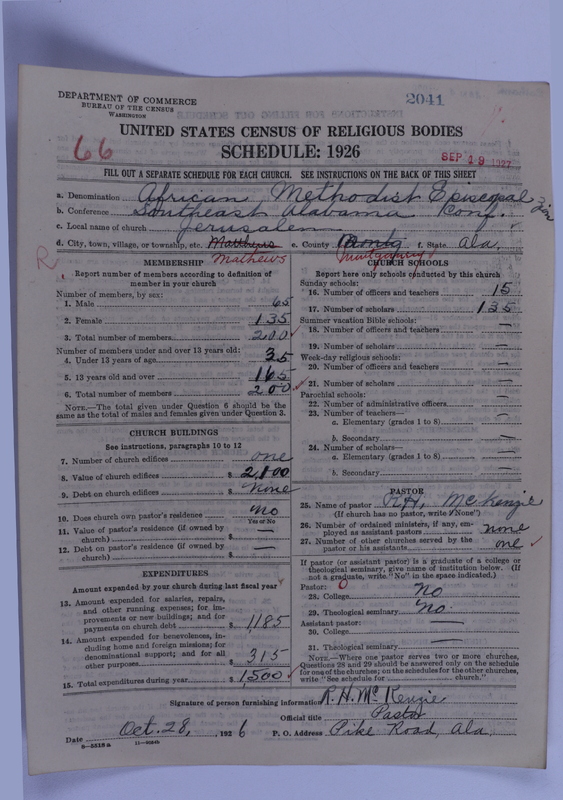 DEPARTMENT OF COMMERCE
BUREAU OF THE CENSUS
WASHINGTON
2041
UNITED STATES CENSUS OF RELIGIOUS BODIES
66
SCHEDULE: 1926
SEP 19 1927
FILL OUT A SEPARATE SCHEDULE FOR EACH CHURCH. SEE INSTRUCTIONS ON THE BACK OF THIS SHEET
a. Denomination African Methodist Episcopal Zion
b. Conference Southeast Alabama Conf.
c. Local name of church Jerusalem
d. City, town, village, or township, etc. Matthews e. County Montg f. State Ala.
R
Mathews
Montgomery
MEMBERSHIP
Report number of members according to definition of
member in your church
Number of members, by sex:
1. Male 65
2. Female 135
3. Total number of members 200
Number of members under and over 13 years old:
4. Under 13 years of age 35
5. 13 years old and over 165
6. Total number of members 200
NOTE.—The total given under Question 6 should be the
same as the total of males and females given under Question 3.
CHURCH BUILDINGS
See instructions, paragraphs 10 to 12
7. Number of church edifices one
8. Value of church edifices $ 2,100
9. Debt on church edifices $ none
10. Does church own pastor's residence No
Yes or No
11. Value of pastor's residence (if owned by
church) $ —
12. Debt on pastor's residence (if owned by
church) $ —
EXPENDITURES
Amount expended by your church during last fiscal year
13. Amount expended for salaries, repairs,
and other running expenses; for im-
provements or new buildings; and for
payments on church debt $ 1185
14. Amount expended for benevolences, in-
cluding home and foreign missions; for
denominational support; and for all
other purposes $ 315
15. Total expenditures during year $ 1500
CHURCH SCHOOLS
Report here only schools conducted by this church
Sunday schools:
16. Number of officers and teachers 15
17. Number of scholars 135
Summer vacation Bible schools:
18. Number of officers and teachers —
19. Number of scholars —
Week-day religious schools:
20. Number of officers and teachers —
21. Number of scholars —
Parochial schools:
22. Number of administrative officers —
23. Number of teachers—
a. Elementary (grades 1 to 8) —
b. Secondary —
24. Number of scholars—
a. Elementary (grades 1 to 8) —
b. Secondary —
PASTOR
25. Name of pastor R.H. McKenzie
(If church has no pastor, write "None")
26. Number of ordained ministers, if any, em-
ployed as assistant pastors none
27. Number of other churches served by the
pastor or his assistants one
If pastor (or assistant pastor) is a graduate of a college or
theological seminary, give name of institution below. (If
not a graduate, write "No" in the space indicated.)
Pastor: 0
28. College No
29. Theological seminary No
Assistant pastor:
30. College —
31. Theological seminary —
NOTE.—Where one pastor serves two or more churches,
Questions 28 and 29 should be answered only on the schedule
for one of the churches; on the schedules for the other churches,
write "See schedule for church."
Signature of person furnishing information R. H. McKenzie
Official title Pastor
Date Oct. 28, 1926 P. O. Address Pike Road, Ala.
8-5518a